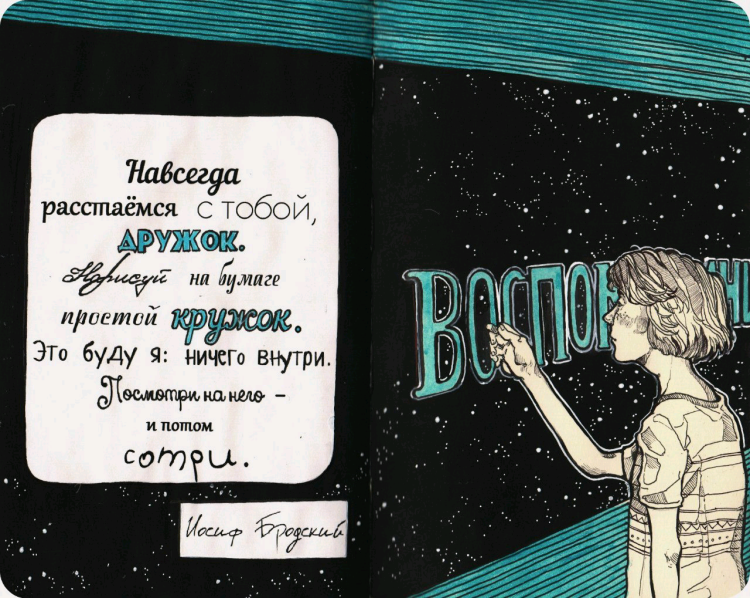 Навсегда
расстаёмся с тобой,
дружок.
Нарисуй на бумаге
простой кружок.
Это буду я: ничего внутри.
Посмотри на него –
и потом
сотри.
Иосиф Бродский
Воспом ни